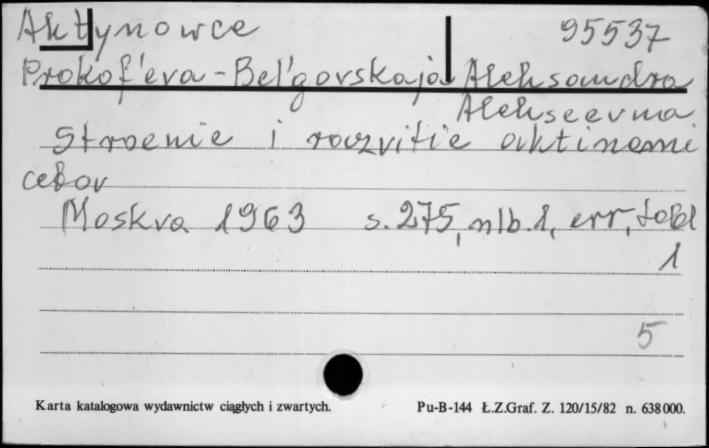 Aktynowce 95537
Prokof'eva-Bel'govskaja Aleksandra
Alekseevna
Stroenie i razvitie aktinomi
cetov
Moskva 1963 s. 275, nlb. 1, err, tabl
1
5
Karta katalogowa wydawnictw ciągłych i zwartych. Pu-B-144 Ł.Z.Graf. Z. 120/15/82 n. 638 000.